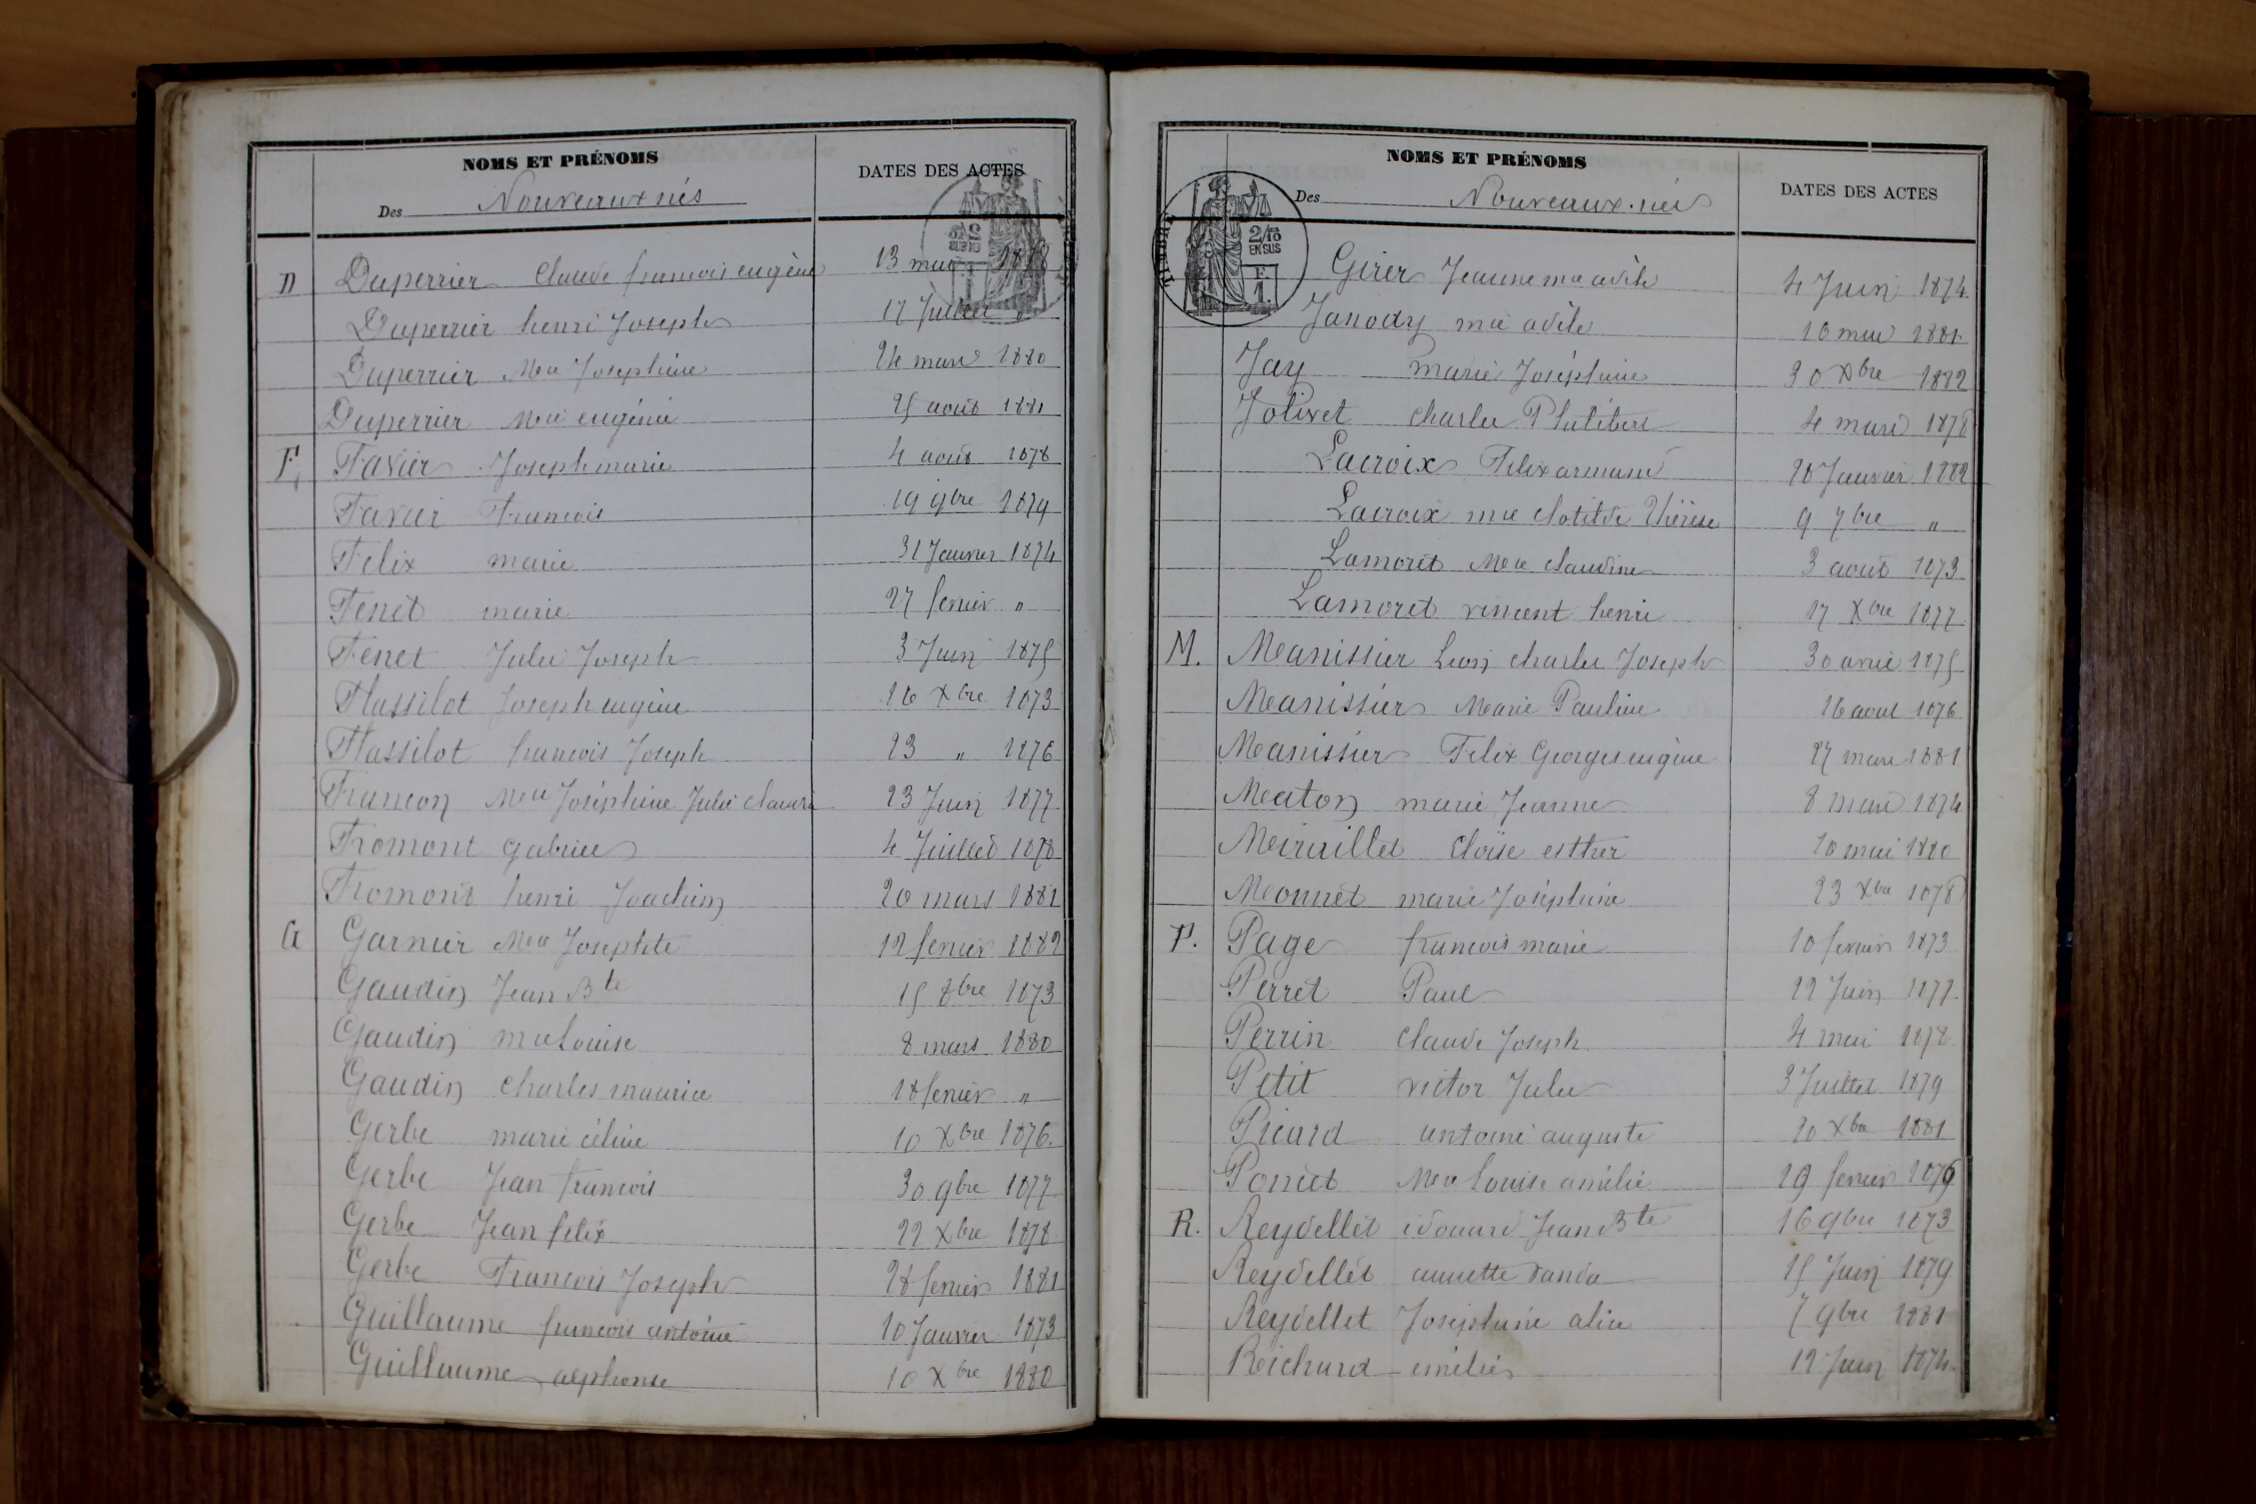 NOMS ET PRÉNOMS
DATES DES ACTES
Des Nouveaux nés
D Duperrier Claude francois eugène 13 mai
Duperrier henri Joseph 17 Juillet "
Duperrier Mie Joséphine 24 mars 1880
Duperrier Mie eugénie 25 août 1881
F. Favier Joseph marie 4 août 1878
Favier Francois 19 9bre 1879
Felix marie 31 Janvier 1874
Fenet marie 27 fevrier "
Fenet Jules Joseph 3 Juin 1875
Flassilot Joseph eugène 16 Xbre 1873
Flassilot francois Joseph 23 " 1876
Francon Mie Joséphine Julie 23 Juin 1877
Fromont gabriel 4 Juillet 1878
Fromont henri Joachim 20 mars 1881
G Garnier Mie Josephte 12 fevrier 1882
Gaudin Jean Bte 15 8bre 1873
Gaudin mie Louise 8 mars 1880
Gaudin Charles maurice 18 fevrier "
Gerbe marie céline 10 Xbre 1876.
Gerbe Jean francois 30 9bre 1877
Gerbe Jean felix 22 Xbre 1878
Gerbe Francois Joseph 28 fevrier 1881
Guillaume francois antoine 10 Janvier 1873
Guillaume alphonse 10 Xbre 1880
NOMS ET PRÉNOMS
DATES DES ACTES
Des Nouveaux-nés
2/10 EN SUS
F. 1.
Girer Jeanne mie adèle 4 Juin 1874
Janody mie adèle 1881
Jay marie Joséphine 30 Xbre 1882
Jolivet Charles Philibert 4 mars 1878
Lacroix Felix armand 28 Janvier 1882
Lacroix mie Clotilde Thérèse 9 7bre "
Lamoret Mie Claudine 3 août 1873
Lamoret vincent henri 17 Xbre 1877
M. Meanissier Leon Charles Joseph 30 avril 1875
Meanissier Marie Pauline 16 aout 1876
Meanissier Felix Georges eugène 27 mars 1881
Meaton marie Jeanne 8 mars 1874
Meiraillet Cloïse esther 10 mai 1880
Meonnet marie Joséphine 23 Xbre 1878
P. Page francois marie 10 fevrier 1873
Perret Paul 22 Juin 1877.
Perrin Claude Joseph 4 mai 1878
Petit victor Jules 3 Juillet 1879
Picard antoine auguste 20 Xbre 1881
Poncet Mie Louise amélie 19 fevrier 1879
R. Reydellet édouard Jean Bte 16 9bre 1873
Reydellet annette vanda 15 Juin 1879
Reydellet Joséphine alice 7 9bre 1881
Reichard emélie 12 Juin 1874.